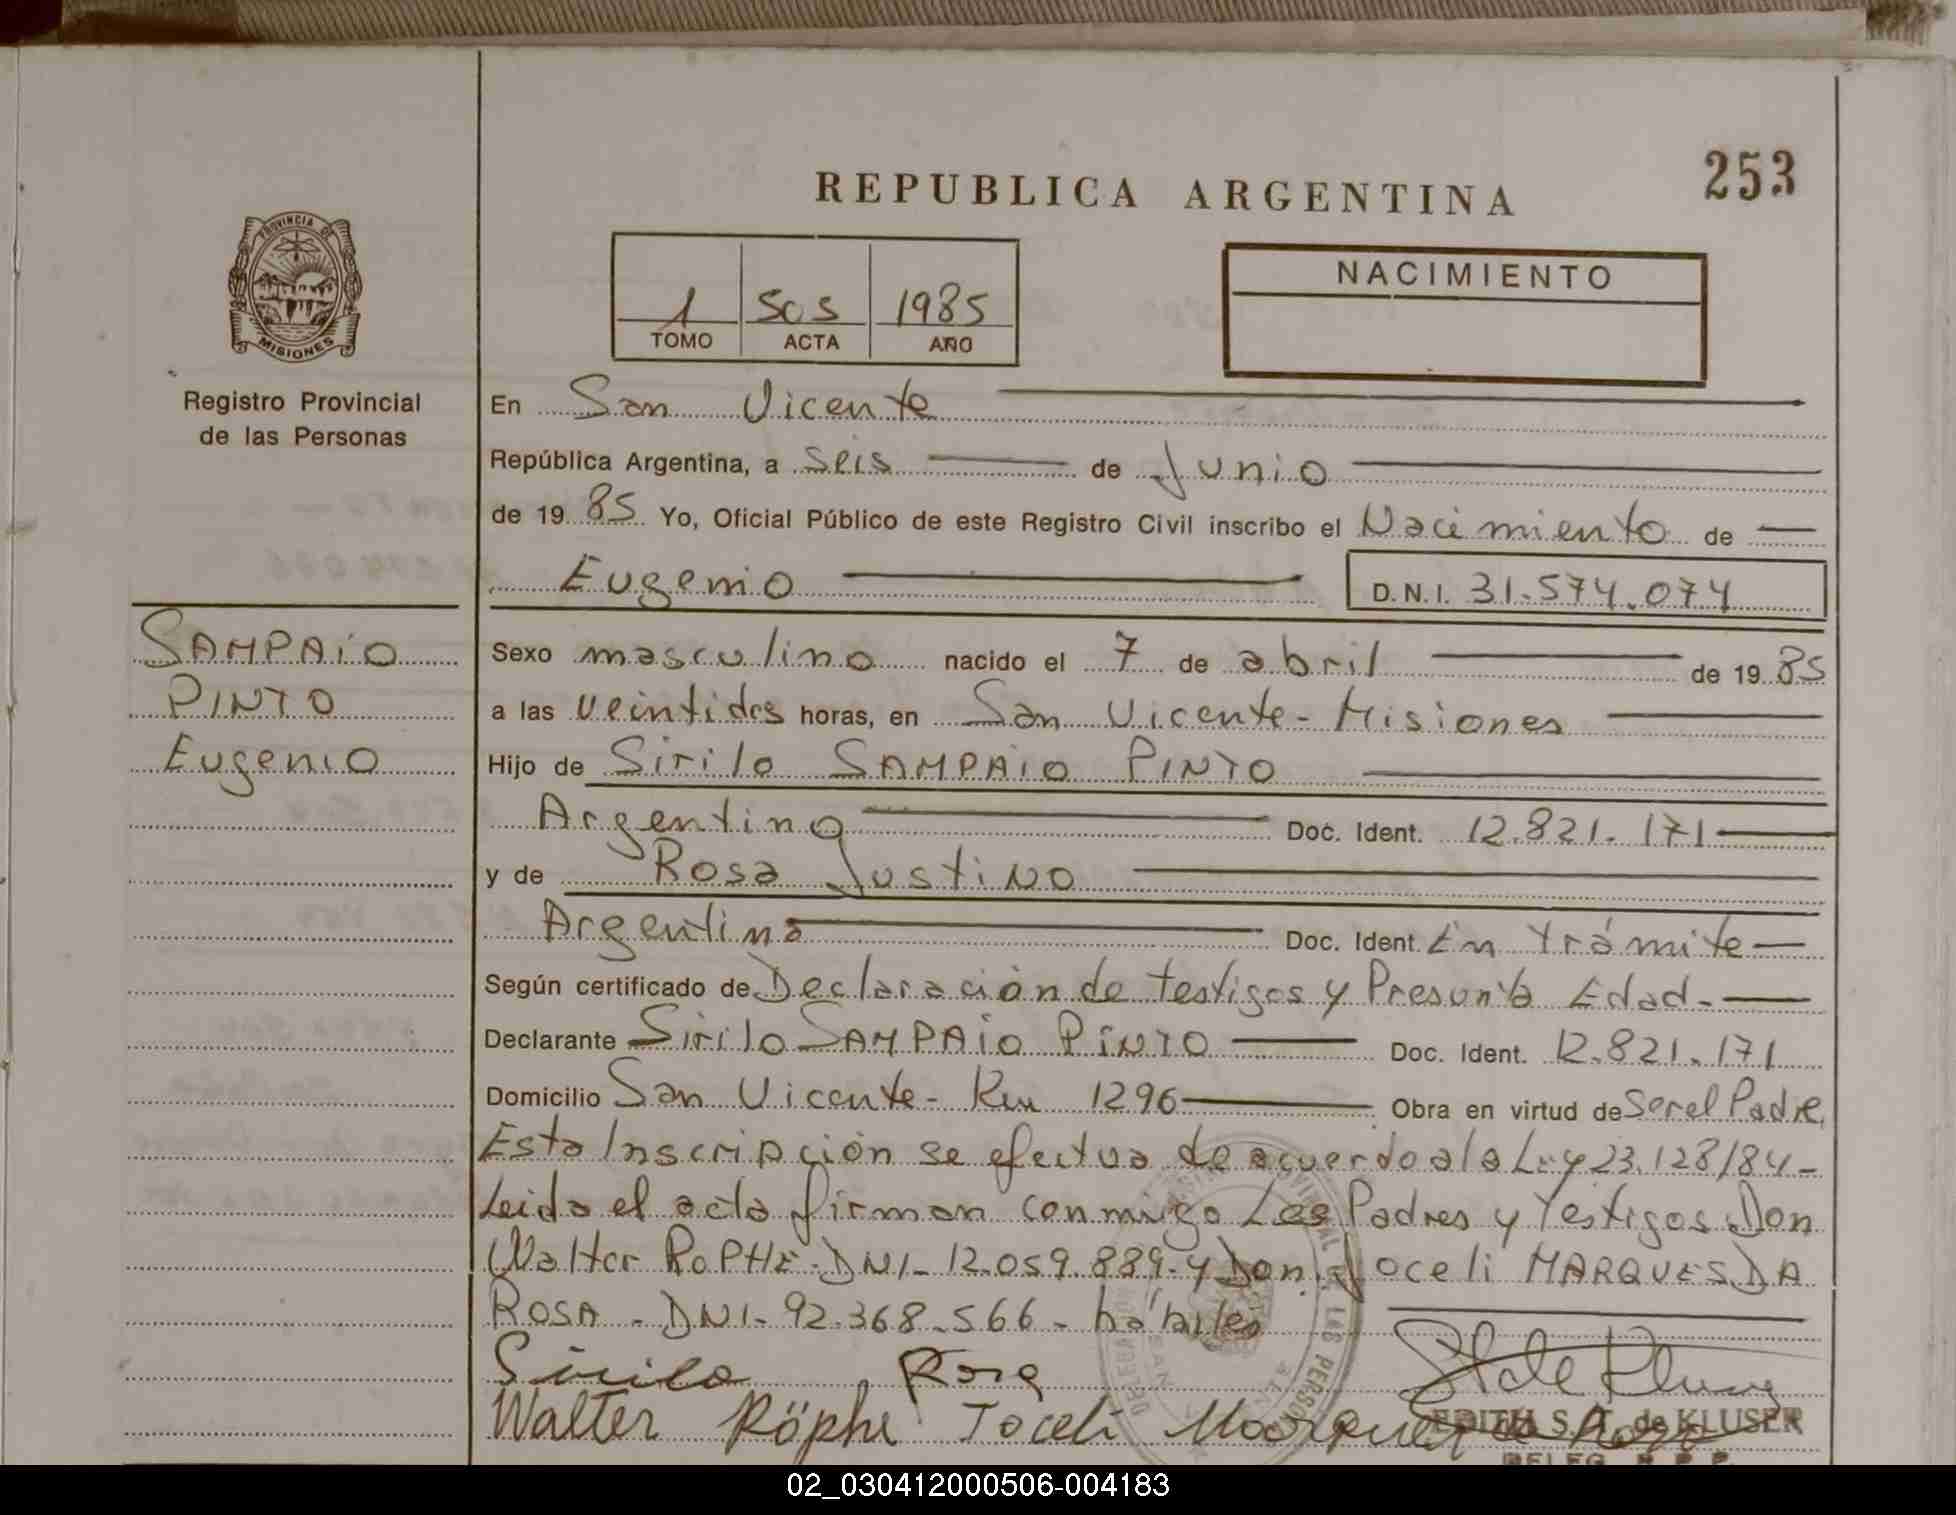 REPUBLICA ARGENTINA
253
PROVINCIA DE
MISIONES
Registro Provincial
de las Personas
1 505 1985
TOMO ACTA AÑO
NACIMIENTO
En San Vicente
República Argentina, a seis de Junio
de 1985 Yo, Oficial Público de este Registro Civil inscribo el Nacimiento de
Eugenio D.N.I. 31.574.074
SAMPAIO
PINTO
Eugenio
Sexo masculino nacido el 7 de abril de 1985
a las veintidos horas, en San Vicente - Misiones
Hijo de Sirilo SAMPAIO PINTO
Argentino Doc. Ident. 12.821.171
y de Rosa Justino
Argentina Doc. Ident. En trámite
Según certificado de Declaración de testigos y Presunta Edad.
Declarante Sirilo SAMPAIO PINTO Doc. Ident. 12.821.171
Domicilio San Vicente - Km 1296 Obra en virtud de Ser el Padre
Esta Inscripción se efectua de acuerdo a la Ley 23.128/84 -
Leida el acta firman conmigo Los Padres y Testigos Don
Walter RoPHE - DNI - 12.059.889 - y Don Joceli MARQUES DA
ROSA - DNI - 92.368.566 - hábiles
Sirilo Rosa
Walter Röphe Joceli Marques da Rosa
EDITH S. de KLUSER
DELEG. R.P.P.
02_030412000506-004183